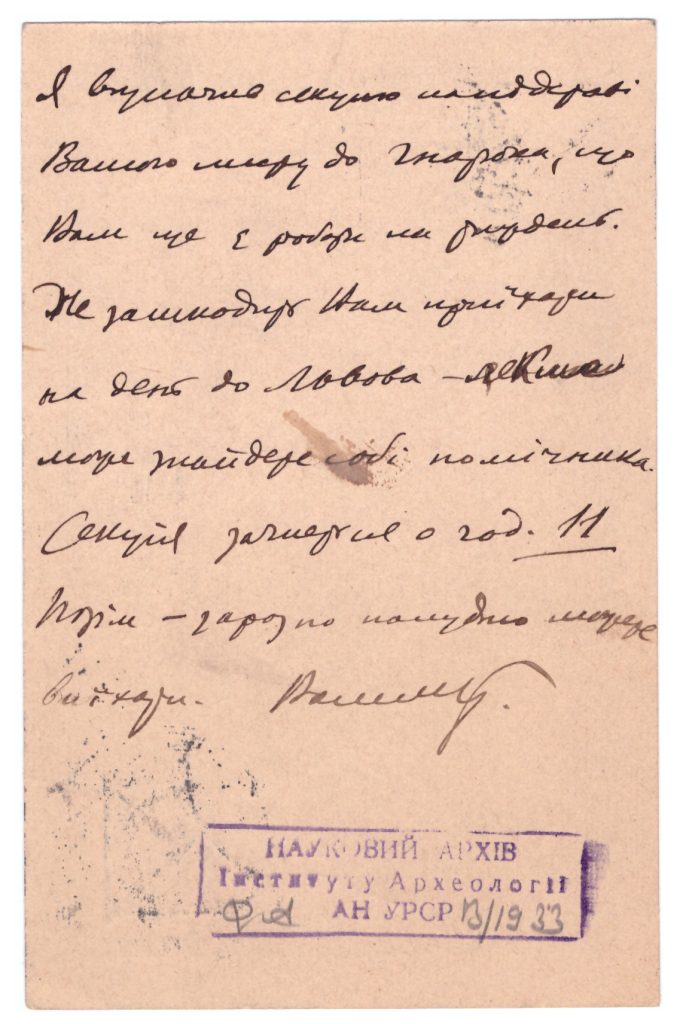 Я визначив секцию на підставі
Вашого листу до Гнатюка, що
Вам ще є роботи на тиждень.
Не зашкодить Вам приїхати
на день до Львова –
може знайдете собі помічника.
Секція зачнеться о год. 11
Потім – зараз по полудню можете
виїхати.
НАУКОВИЙ АРХІВ
Інституту Археології
АН УРСР В/1933